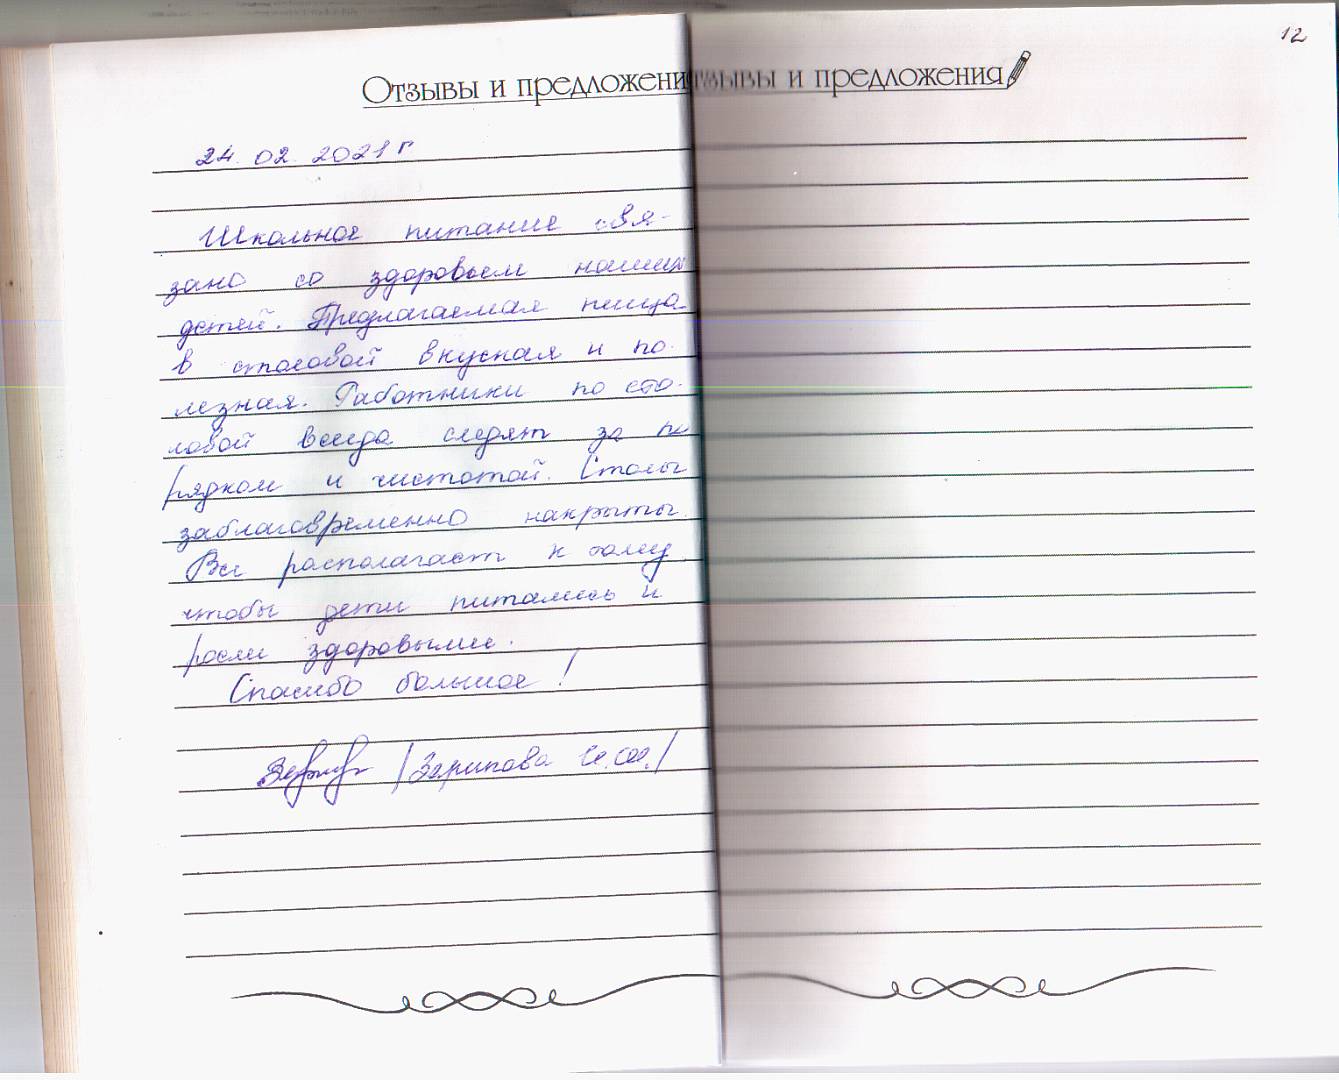 Отзывы и предложени
24. 02. 2021 г
Школьное питание свя-
зано со здоровьем наших
детей. Предлагаемая пища
в столовой вкусная и по-
лезная. Работники по сто-
ловой всегда следят за по
рядком и чистотой. Столы
заблаговременно накрыты.
Все располагает к тому
чтобы дети питались и
росли здоровыми.
Спасибо большое!
/Зарипова
12
тзывы и предложения